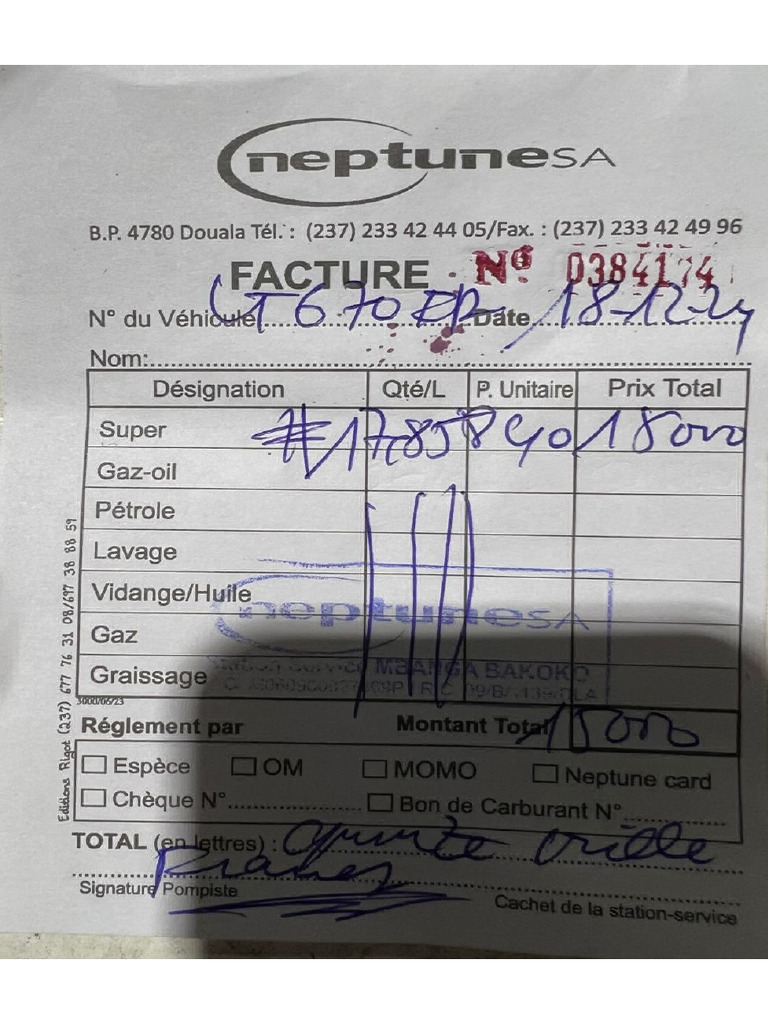 neptune SA
B.P. 4780 Douala Tél. : (237) 233 42 44 05/Fax. : (237) 233 42 49 96
FACTURE Nº 0384174
N° du Véhicule LT 670 Date 18-12-24
Nom:
Désignation Qté/L P. Unitaire Prix Total
Super # 17,85 840 15000
Gaz-oil
Pétrole
Lavage
Vidange/Huile
Gaz
Graissage
neptune SA
Station Service MBANGA BAKOKO
3000/06/23
Réglement par Montant Total 15000
Espèce OM MOMO Neptune card
Chèque N° Bon de Carburant N°
TOTAL (en lettres) : quinze mille
Signature Pompiste
Cachet de la station-service
Editions Rigot (237) 677 76 31 08/697 38 88 59